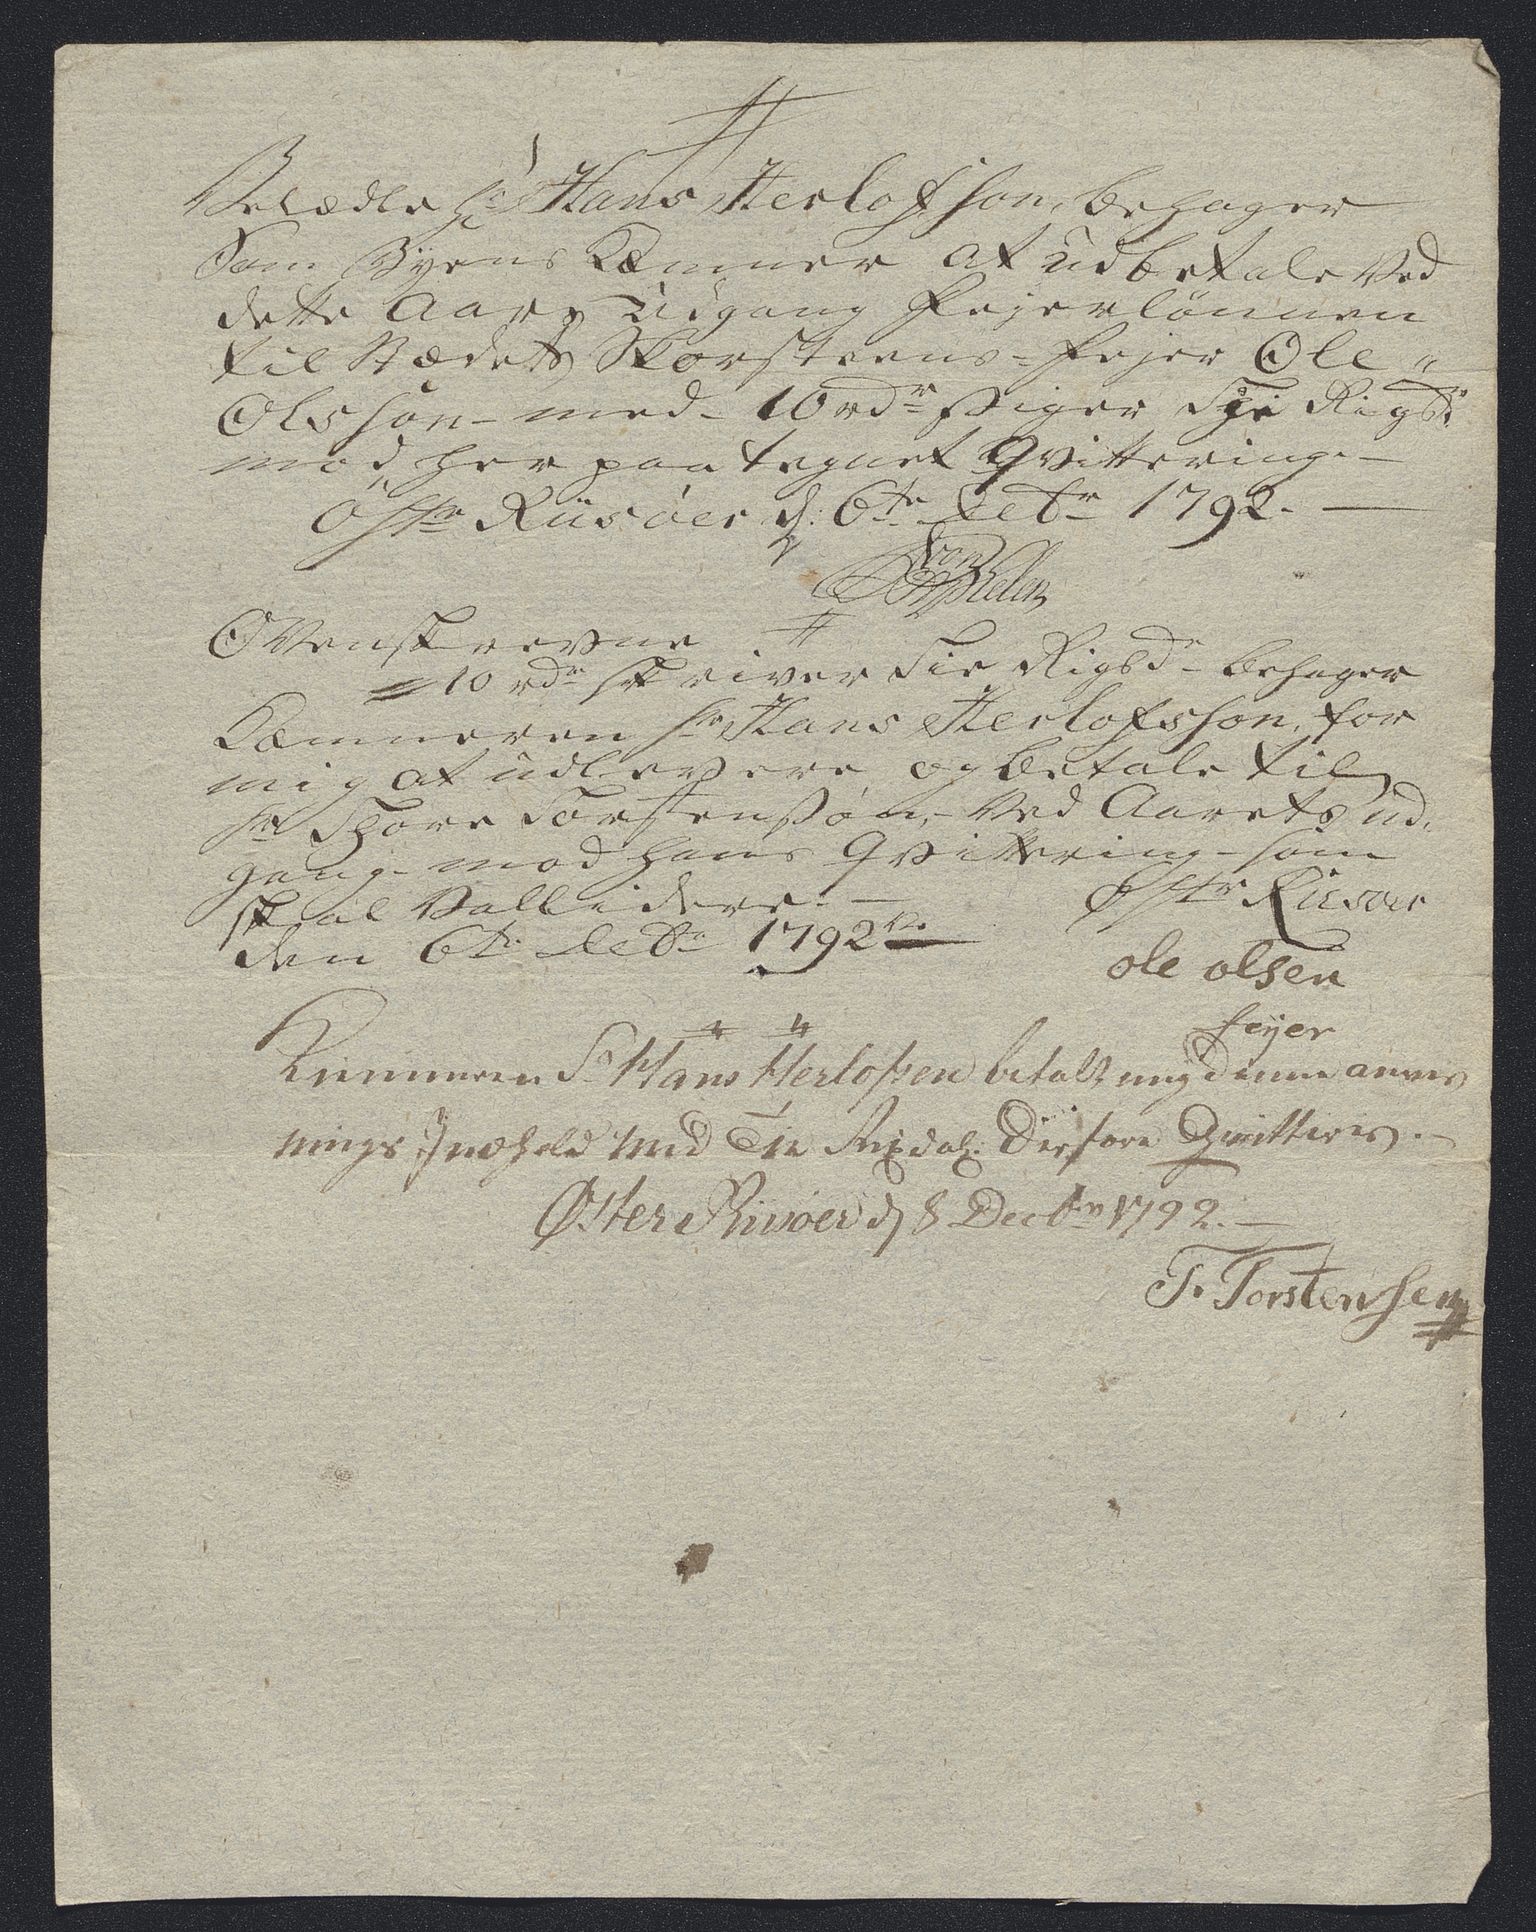 Velædle Hr Hans Herlofson, behager
Som Byens Kæmner at udbetale ved
dette Aars Udgang Fejerlønnen
til Stædets Skorsteens-Fejer Ole
Olsson - med - 10 rdr siger Tie Rigsdr
mod her paategnet Qvittering. -
Østr Riisøer d: 6te Decbr 1792. -
von
Ovenskrevne
10 rdr skriver Tie Rigsdr - behager
Kæmneren Hr Hans Herlofsson, for
mig at udlevere og betale til
Hr Thore Torstensøn, - ved Aarets ud-
gang - mod hans Qvittering - som
skal Vallidere. - Østr Riisøer
den 6te Decbr 1792
ole olsen
feyer
Kiemneren Sr Hans Herlofsen betalt mig denne anvis
nings Indhold med Tie Rixdal. Derfore Qvitteres. -
Øster Riisøer d 8 Decbr 1792. -
T. Torstensen